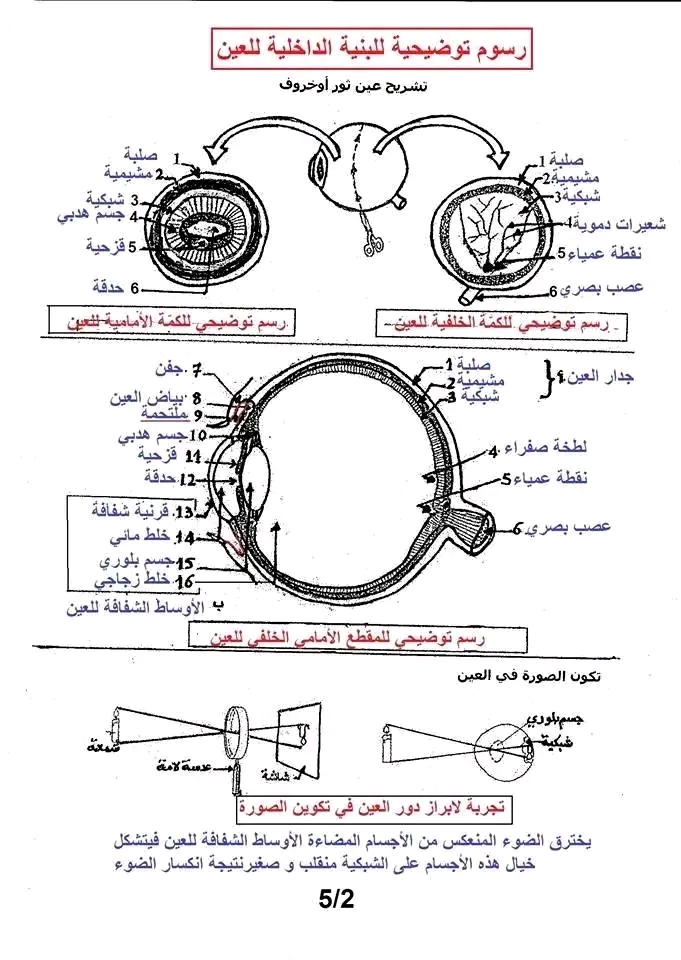 رسوم توضيحية للبنية الداخلية للعين
تشريح عين ثور أوخروف
صلبة 1
مشيمية 2
شبكية 3
جسم هدبي 4
قزحية 5
حدقة 6
صلبة 1
مشيمية 2
شبكية 3
شعيرات دموية 4
نقطة عمياء 5
عصب بصري 6
رسم توضيحي للكمّة الأمامية للعين
رسم توضيحي للكمّة الخلفية للعين
جدار العين
صلبة 1
مشيمية 2
شبكية 3
لطخة صفراء 4
نقطة عمياء 5
عصب بصري 6
7 جفن
8 بياض العين
9 ملتحمة
10 جسم هدبي
11 قزحية
12 حدقة
13 قرنية شفافة
14 خلط مائي
15 جسم بلوري
16 خلط زجاجي
ب الأوساط الشفافة للعين
رسم توضيحي للمقطع الأمامي الخلفي للعين
تكون الصورة في العين
شمعة
عدسة لامة
شاشة
جسم بلوري
شبكية
تجربة لابراز دور العين في تكوين الصورة
يخترق الضوء المنعكس من الأجسام المضاءة الأوساط الشفافة للعين فيتشكل
خيال هذه الأجسام على الشبكية منقلب و صغيرنتيجة انكسار الضوء
5/2